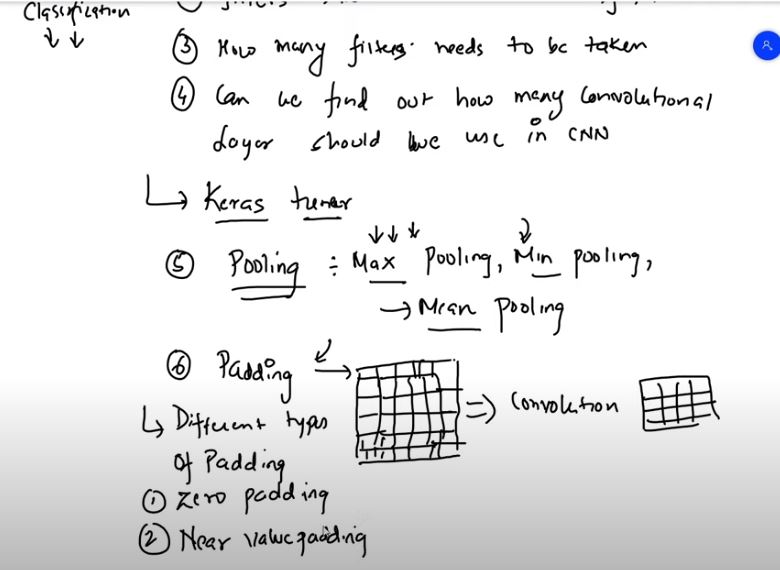 Classification
③ How many filters needs to be taken
④ Can we find out how many Convolutional
Layer should we use in CNN
Keras tuner
⑤ Pooling ÷ Max Pooling, Min pooling,
→ Mean pooling
⑥ Padding
Different types
of Padding
⇒ Convolution
① Zero padding
② Near value padding